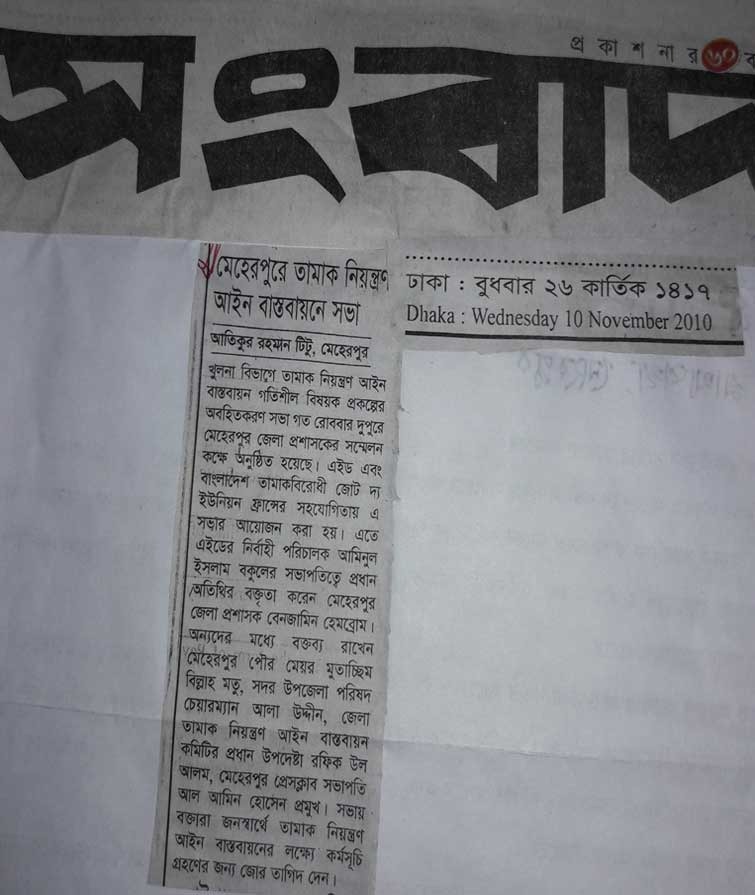 প্রকাশনার ৬০ ব
সংবাদ
মেহেরপুরে তামাক নিয়ন্ত্রণ
আইন বাস্তবায়নে সভা
আতিকুর রহমান টিটু, মেহেরপুর
খুলনা বিভাগে তামাক নিয়ন্ত্রণ আইন
বাস্তবায়ন গতিশীল বিষয়ক প্রকল্পের
অবহিতকরণ সভা গত রোববার দুপুরে
মেহেরপুর জেলা প্রশাসকের সম্মেলন
কক্ষে অনুষ্ঠিত হয়েছে। এইড এবং
বাংলাদেশ তামাকবিরোধী জোট দ্য
ইউনিয়ন ফ্রান্সের সহযোগিতায় এ
সভার আয়োজন করা হয়। এতে
এইডের নির্বাহী পরিচালক আমিনুল
ইসলাম বকুলের সভাপতিত্বে প্রধান
অতিথির বক্তৃতা করেন মেহেরপুর
জেলা প্রশাসক বেনজামিন হেমব্রোম।
অন্যদের মধ্যে বক্তব্য রাখেন
মেহেরপুর পৌর মেয়র মুতাচ্ছিম
বিল্লাহ মতু, সদর উপজেলা পরিষদ
চেয়ারম্যান আলা উদ্দীন, জেলা
তামাক নিয়ন্ত্রণ আইন বাস্তবায়ন
কমিটির প্রধান উপদেষ্টা রফিক উল
আলম, মেহেরপুর প্রেসক্লাব সভাপতি
আল আমিন হোসেন প্রমুখ। সভায়
বক্তারা জনস্বার্থে তামাক নিয়ন্ত্রণ
আইন বাস্তবায়নের লক্ষ্যে কর্মসূচি
গ্রহণের জন্য জোর তাগিদ দেন।
ঢাকা : বুধবার ২৬ কার্তিক ১৪১৭
Dhaka : Wednesday 10 November 2010